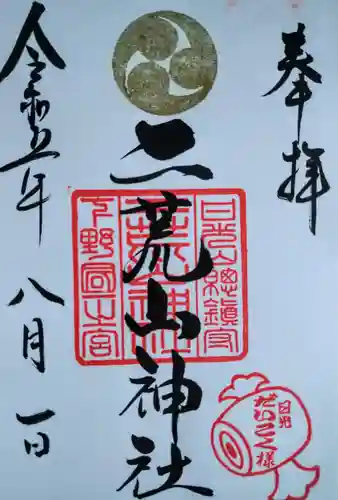 奉拝
二荒山神社
日光山総鎮守
二荒山神社
下野国一之宮
日光
だいこく様
令和五年
八月一日